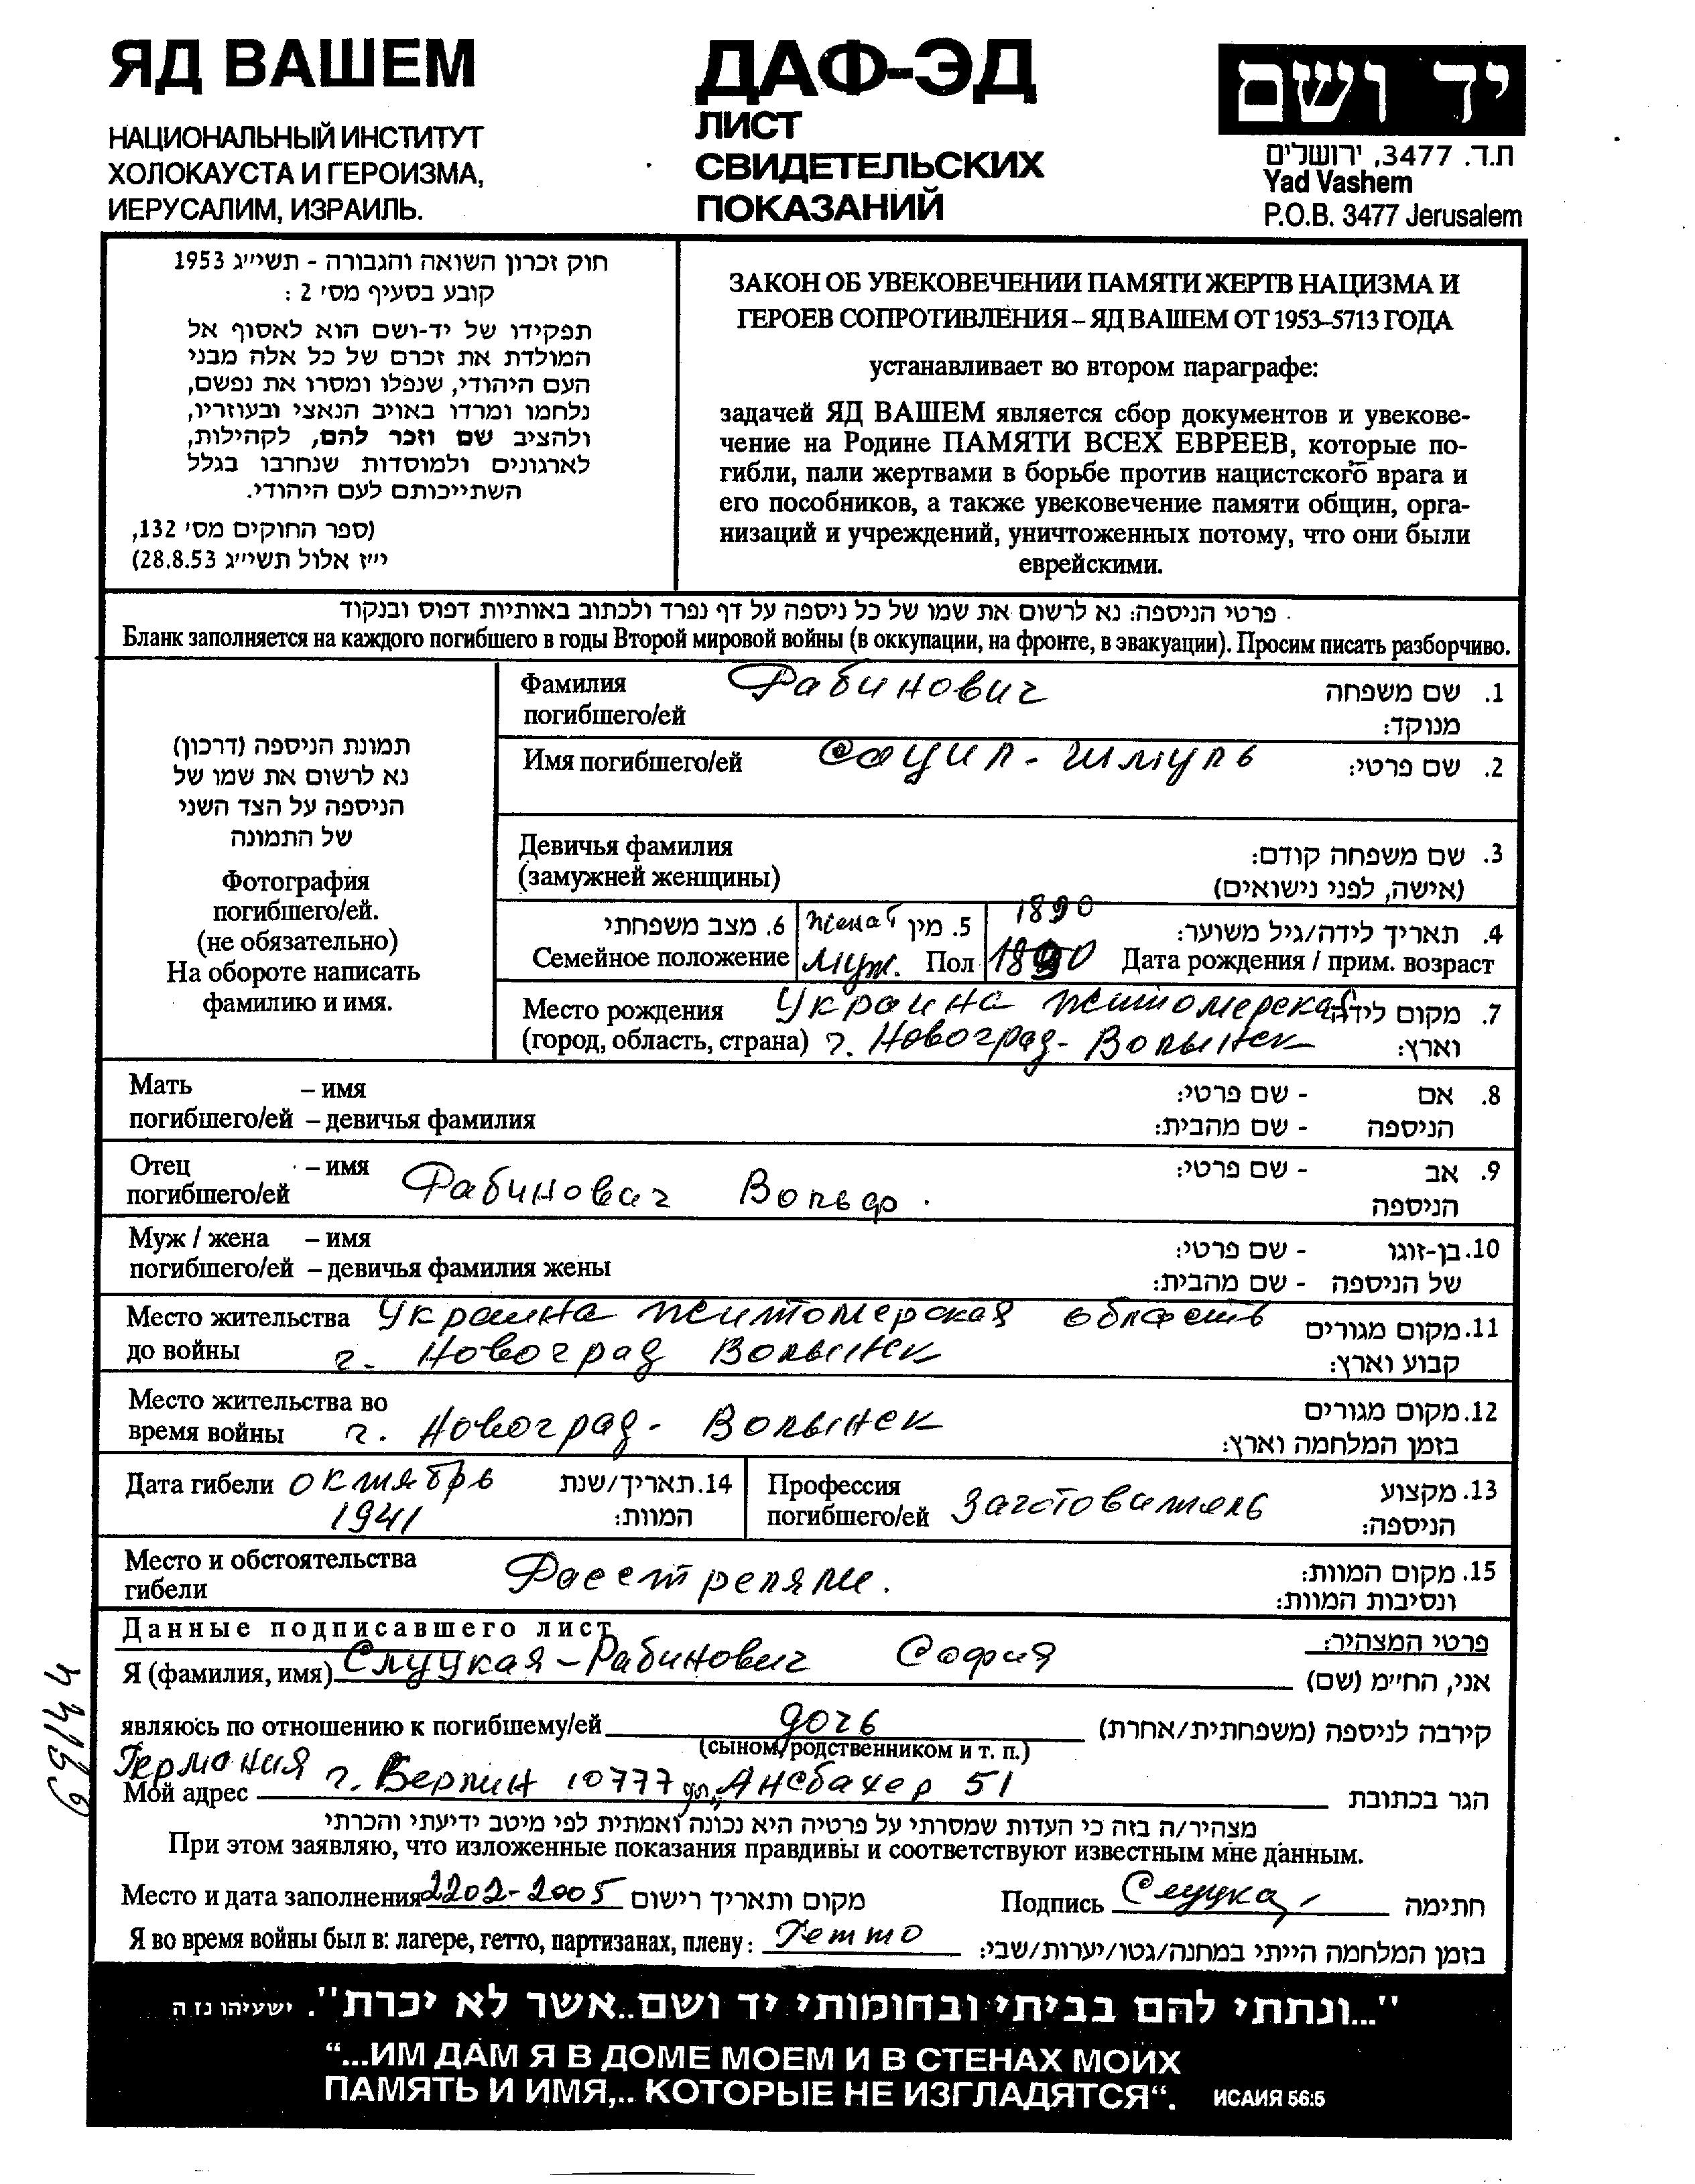 ЯД ВАШЕМ
НАЦИОНАЛЬНЫЙ ИНСТИТУТ
ХОЛОКАУСТА И ГЕРОИЗМА,
ИЕРУСАЛИМ, ИЗРАИЛЬ.
ДАФ-ЭД
ЛИСТ
СВИДЕТЕЛЬСКИХ
ПОКАЗАНИЙ
יד ושם
ת.ד. 3477, ירושלים
Yad Vashem
P.O.B. 3477 Jerusalem
חוק זכרון השואה והגבורה - תשי״ג 1953
קובע בסעיף מס׳ 2 :
תפקידו של יד-ושם הוא לאסוף אל
המולדת את זכרם של כל אלה מבני
העם היהודי, שנפלו ומסרו את נפשם,
נלחמו ומרדו באויב הנאצי ובעוזריו,
ולהציב שם וזכר להם, לקהילות,
לארגונים ולמוסדות שנחרבו בגלל
השתייכותם לעם היהודי.
(ספר החוקים מס׳ 132,
י״ז אלול תשי״ג 28.8.53)
ЗАКОН ОБ УВЕКОВЕЧЕНИИ ПАМЯТИ ЖЕРТВ НАЦИЗМА И
ГЕРОЕВ СОПРОТИВЛЕНИЯ – ЯД ВАШЕМ ОТ 1953–5713 ГОДА
устанавливает во втором параграфе:
задачей ЯД ВАШЕМ является сбор документов и увекове-
чение на Родине ПАМЯТИ ВСЕХ ЕВРЕЕВ, которые по-
гибли, пали жертвами в борьбе против нацистского врага и
его пособников, а также увековечение памяти общин, орга-
низаций и учреждений, уничтоженных потому, что они были
еврейскими.
פרטי הניספה: נא לרשום את שמו של כל ניספה על דף נפרד ולכתוב באותיות דפוס ובנקוד
Бланк заполняется на каждого погибшего в годы Второй мировой войны (в оккупации, на фронте, в эвакуации). Просим писать разборчиво.
תמונת הניספה (דרכון)
נא לרשום את שמו של
הניספה על הצד השני
של התמונה
Фотография
погибшего/ей.
(не обязательно)
На обороте написать
фамилию и имя.
Фамилия Рабинович 1. שם משפחה
погибшего/ей מנוקד:
Имя погибшего/ей Сацил-Шмуль 2. שם פרטי:
Девичья фамилия 3. שם משפחה קודם:
(замужней женщины) (אישה, לפני נישואים)
6. מצב משפחתי женат 5. מין 1890 4. תאריך לידה/גיל משוער:
Семейное положение муж. Пол 1890 Дата рождения / прим. возраст
Место рождения Украина Житомерская 7. מקום לידה
(город, область, страна) г. Новоград-Волынск וארץ:
Мать – имя - שם פרטי: 8. אם
погибшего/ей – девичья фамилия - שם מהבית: הניספה
Отец – имя - שם פרטי: 9. אב
погибшего/ей Рабинович Вольф. הניספה
Муж / жена – имя - שם פרטי: 10. בן-זוגו
погибшего/ей – девичья фамилия жены - שם מהבית: של הניספה
Место жительства Украина Житомерская область 11. מקום מגורים
до войны г. Новоград Волынск קבוע וארץ:
Место жительства во 12. מקום מגורים
время войны г. Новоград-Волынск בזמן המלחמה וארץ:
Дата гибели октябрь 14. תאריך/שנת
1941 המוות:
Профессия 13. מקצוע
погибшего/ей Заготовитель הניספה:
Место и обстоятельства 15. מקום המוות:
гибели Расстреляли. ונסיבות המוות:
Данные подписавшего лист פרטי המצהיר:
Я (фамилия, имя) Слуцкая-Рабинович София אני, החי״מ (שם)
являюсь по отношению к погибшему/ей дочь קירבה לניספה (משפחתית/אחרת)
(сыном, родственником и т. п.)
Германия
Мой адрес г. Берлин 10777 ул. Ансбахер 51 הגר בכתובת
מצהיר/ה בזה כי העדות שמסרתי על פרטיה היא נכונה ואמתית לפי מיטב ידיעתי והכרתי
При этом заявляю, что изложенные показания правдивы и соответствуют известным мне данным.
Место и дата заполнения 2202-2005 מקום ותאריך רישום Подпись Слуцка חתימה
Я во время войны был в: лагере, гетто, партизанах, плену: Гетто בזמן המלחמה הייתי במחנה/גטו/יערות/שבי:
"...ונתתי להם בביתי ובחומותי יד ושם..אשר לא יכרת". ישעיהו נז ה
“...ИМ ДАМ Я В ДОМЕ МОЕМ И В СТЕНАХ МОИХ
ПАМЯТЬ И ИМЯ,.. КОТОРЫЕ НЕ ИЗГЛАДЯТСЯ“. ИСАИЯ 56:5